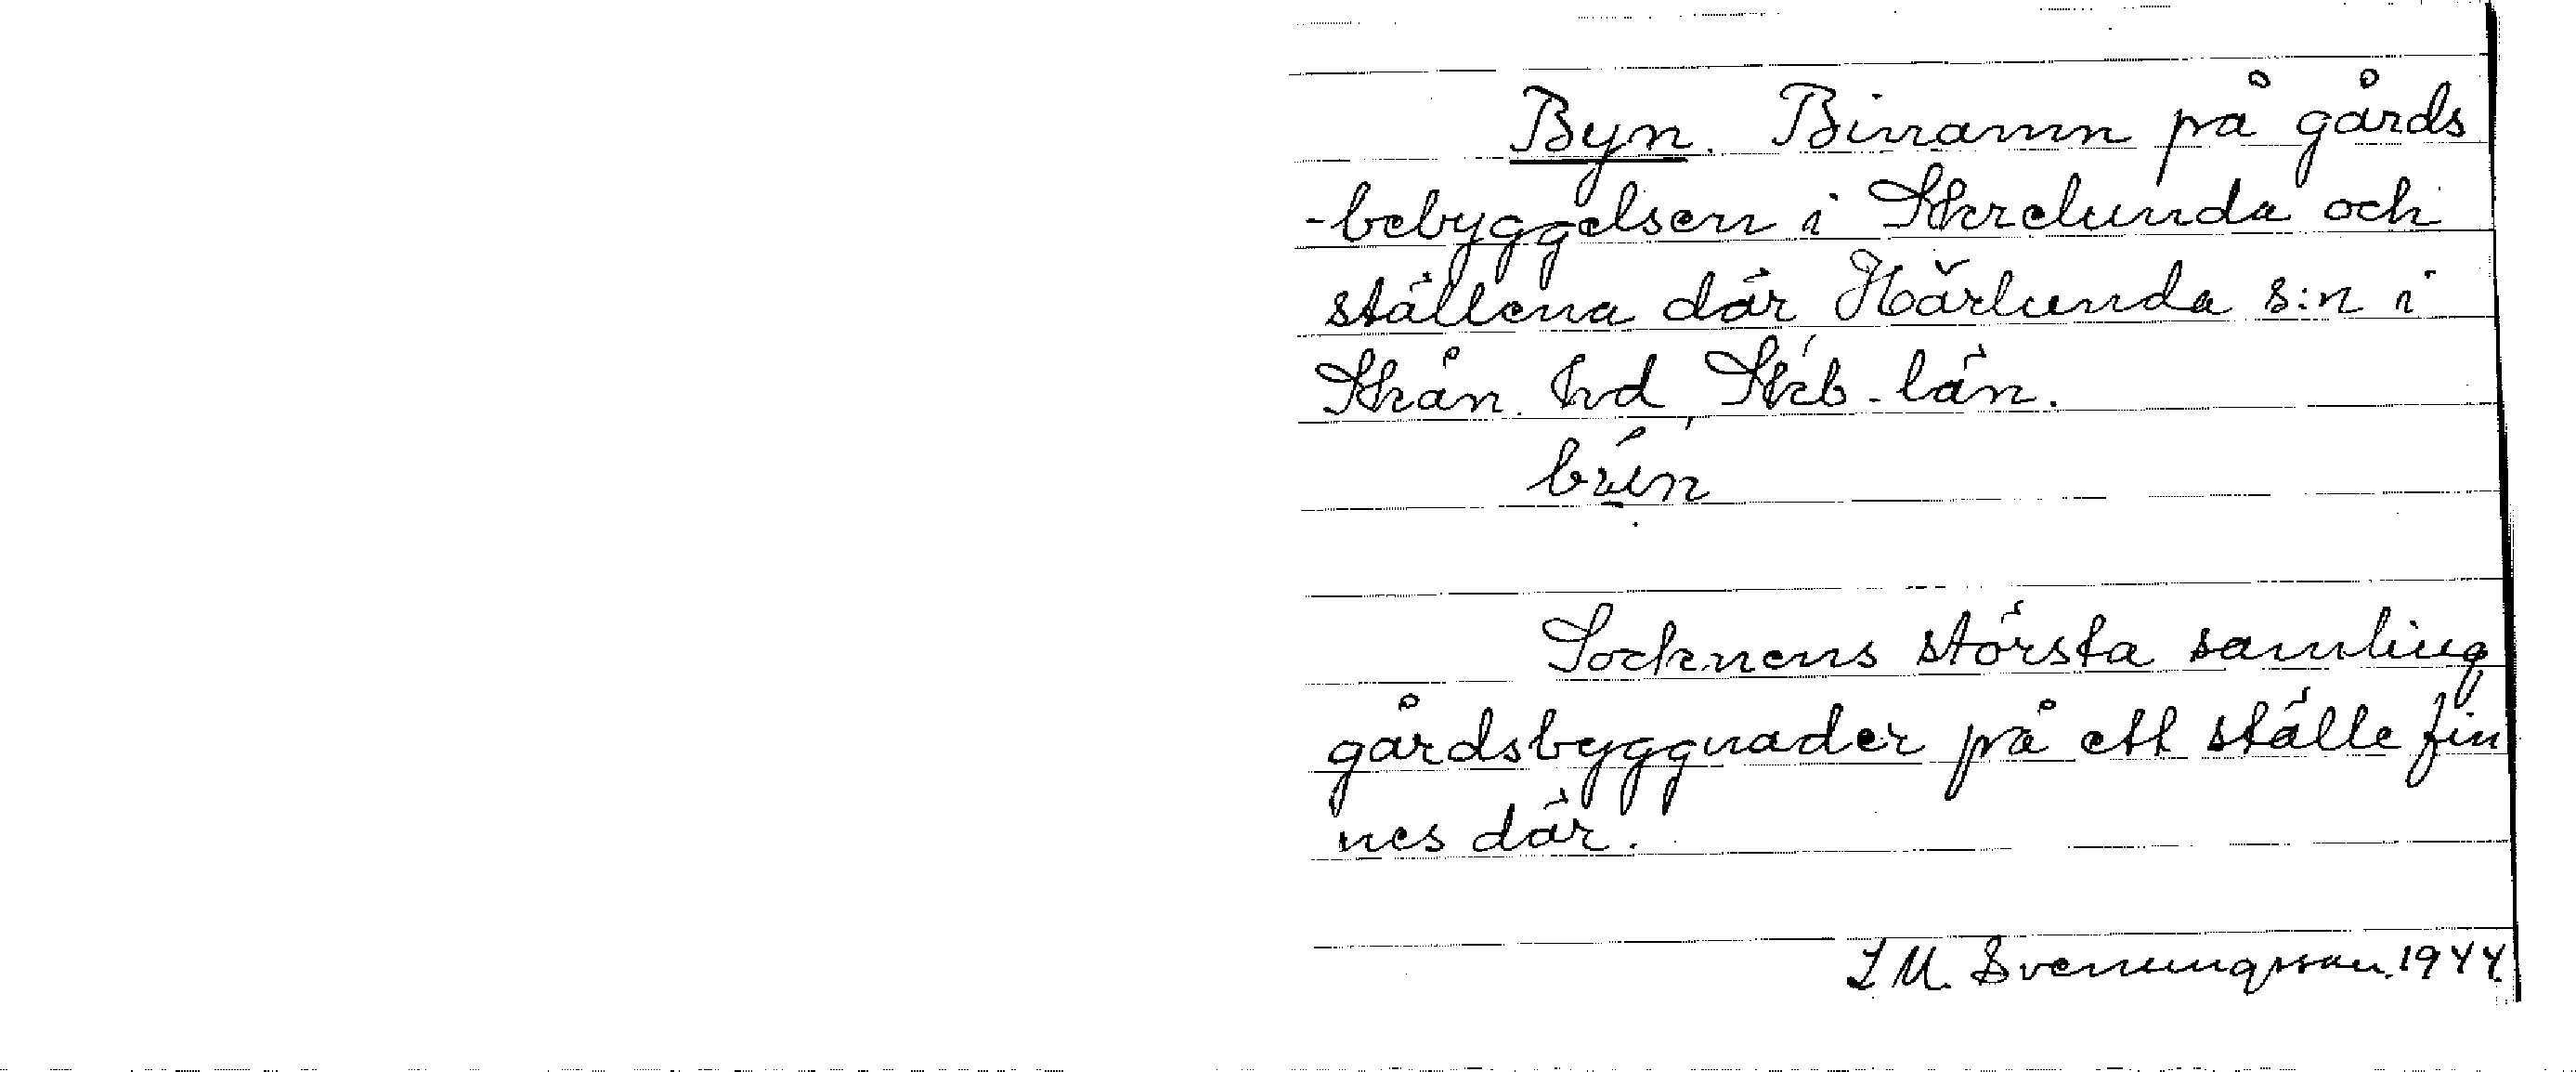 Byn. Binamn på gårds
-bebyggelsen i Skrelunda och
ställena där Härlunda s:n i
Skån. hd, Skb-län.
Socknens största samling
gårdsbyggnader på ett ställe fin
nes där.
I M. Svenungsson. 1944